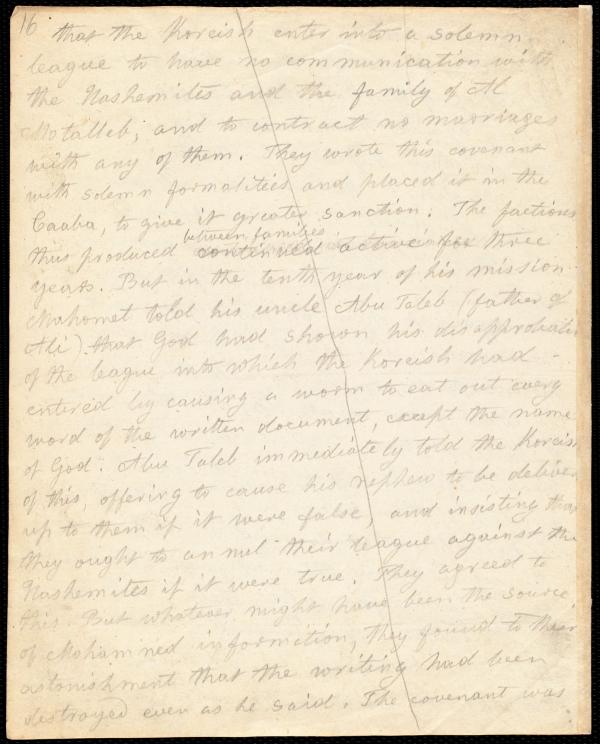 16
that the Koreish enter into a solemn
league to have no communication with
the Hashemites and the family of Al
Motalleb; and to contract no marriages
with any of them. They wrote this covenant
with solemn formalities and placed it in the
Caaba, to give it greater sanction. The factions
between families
thus produced continued active for three
years. But in the tenth year of his mission
Mahomet told his uncle Abu Taleb (father of
Ali) that God had shown his disapprobatio
of the league into which the Koreish had -
entered by causing a worm to eat out every
word of the written document, except the name
of God. Abu Taleb immediately told the Koreish
of this, offering to cause his nephew to be deliver
up to them if it were false, and insisting that
they ought to annul their league against the
Hashemites if it were true. They agreed to
this. But whatever might have been the source
of Mohammed information, they found to their
astonishment that the writing had been
destroyed even as he said. The covenant was